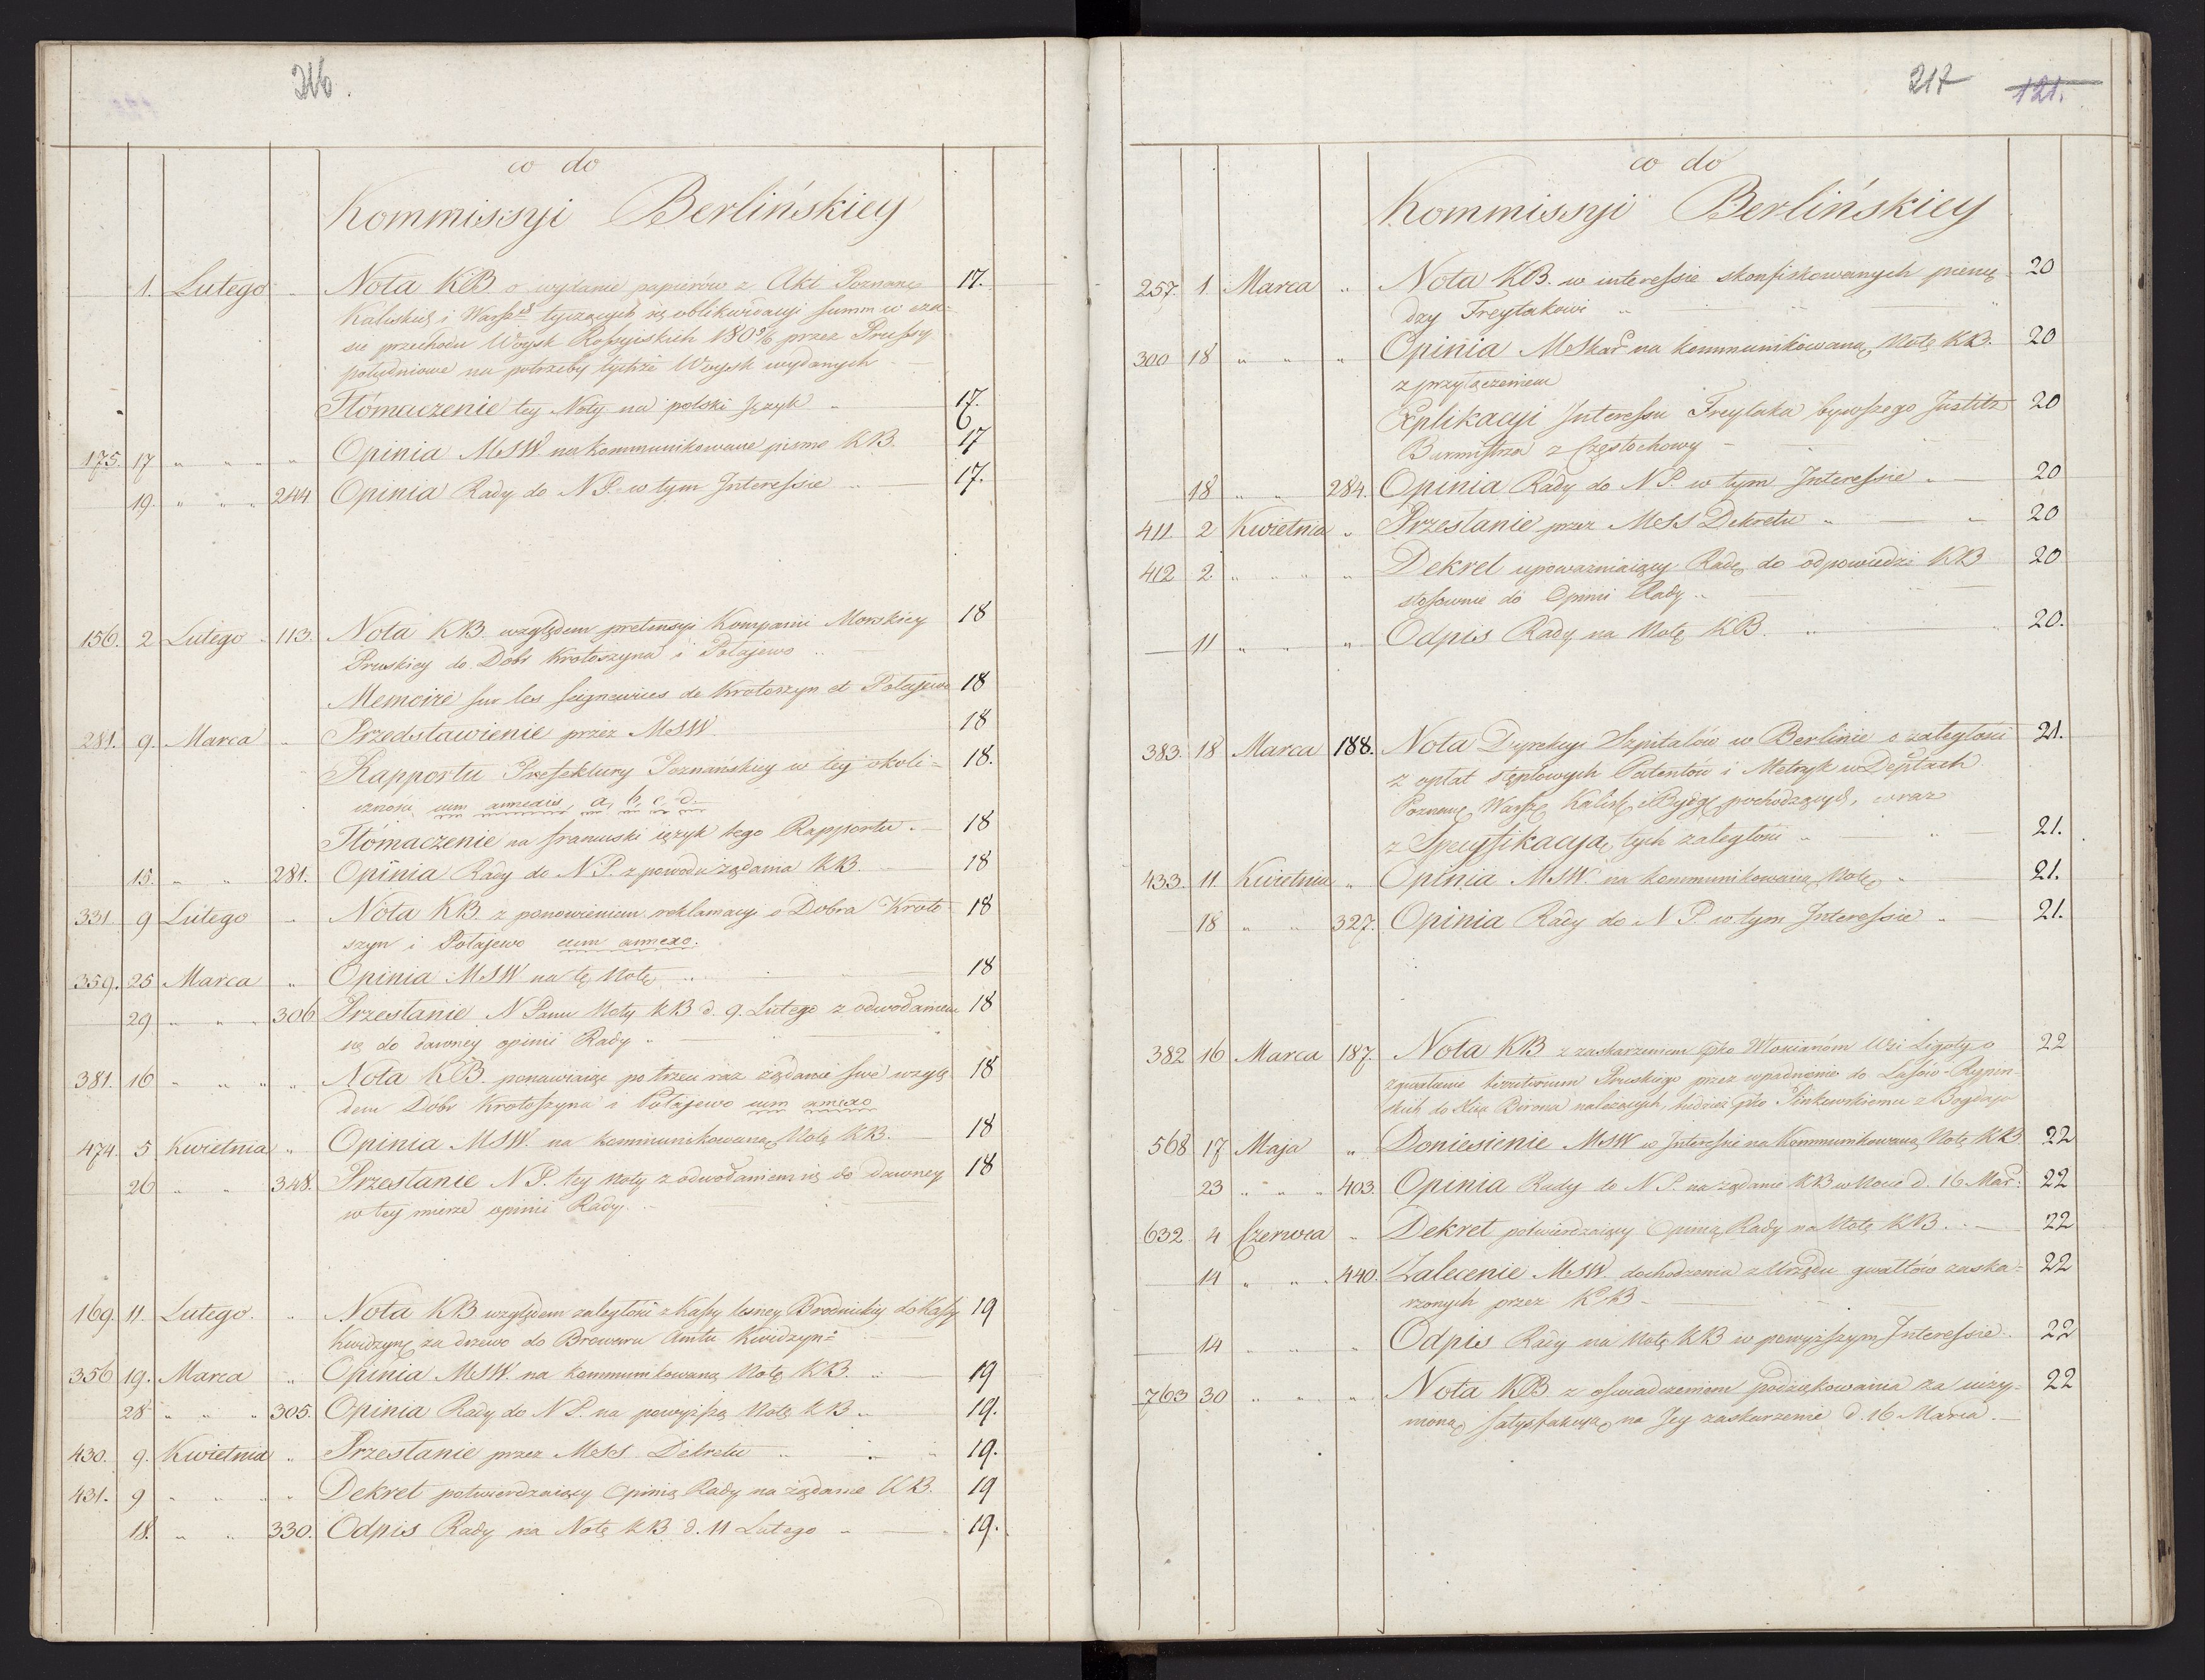 216.
co do
Kommissyi Berlińskiey
1. Lutego " Nota KB. o wydanie papierów z Akt Poznanc 17.
Kaliskie i Warsz tyczących się oblikwidacyi summ w cza=
sie przechodu Woysk Rossyiskich 1805/6 przez Prussy
południowe na potrzeby tychże Woysk wydanych
Tłómaczenie tey Noty na polski Język " 17.
175. 17 " " " " Opinia MSW. na kommunikowane pismo KB. 17
19. " " " 244 Opinia Rady do N P. w tym Interessie " 17.
156. 2 Lutego " 113. Nota KB. względem pretensyi Kompanii Morskiey 18
Pruskiey do Dobr Krotoszyna i Połajewo "
Memoire sur les seigneuries de Krotoszyn et Połajewo 18
281. 9. Marca " Przedstawienie przez MSW. 18
Rapportu Prefektury Poznańskiey w tey okoli= 18.
cznośu cum annexis, a, b, c, d.
Tłómaczenie na francuski ięzyk tego Rapportu. 18
15. " " 281. Opinia Rady do N P. z powodu żądania KB. 18
331. 9 Lutego " Nota KB. z ponowieniem reklamacyi o Dobra Kroto- 18
szyn i Połajewo cum annexo.
359. 25 Marca " Opinia MSW na tę Notę " 18
29 " " " 306 Przesłanie N Panu Noty KB d. 9. Lutego z odwołaniem 18
się do dawney opinii Rady "
381. 16 " " " " Nota KB. ponawiaiąc po trzeci raz żądanie swe wzglę- 18
dem Dóbr Krotoszyna i Połajewo cum annexo
474. 5 Kwietnia " Opinia MSW. na kommunikowaną Notę KB. 18
26 " " 348. Przesłanie N P. tey Noty z odwołaniem się do dawney 18
w tey mierze opinii Rady. "
169. 11. Lutego. " Nota KB względem zaległośu z Kassy lesney Brodnickiey do Kassy 19
Kwidzyn za drzewo do Broweru Amtu Kwidzyn=
356 19. Marca " Opinia MSW. na kommunikowaną Notę KB. " 19
28 " " " 305. Opinia Rady do N P. na powyższą Notę KB " 19.
430. 9. Kwietnia " Przesłanie przez MSS Dekretu " " " 19.
431. 9 " " " " Dekret potwierdzaiący Opinią Rady na żądanie KB. 19
18. " " 330. Odpis Rady na Notę KB d. 11 Lutego " 19.
217 121.
co do
Kommissyi Berlińskiey
257. 1. Marca " Nota KB. w interessie skonfiskowanych pienię- 20
dzy Freytakowi "
300 18 " " " Opinia MSkar na kommunikowaną Notę KB. 20
z przyłączeniem
Explikacyi Interessu Freytaka bywszego Justitz 20
Burmistrza z Częstochowy
18 " " 284. Opinia Rady do N P. w tym Interessie " 20
411. 2 Kwietnia " Przesłanie przez MSS Dekretu " " 20
412 2. " " " " Dekret upoważniaiący Radę do odpowiedzi KB 20
stosownie do Opinii Rady "
11 " " " Odpis Rady na Notę KB. " 20.
383. 18 Marca 188. Nota Dyrekcyi Szpitalów w Berlinie o zaległości 21.
z opłat stęplowych Patentów i Metryk w Deptach
Poznanc, Warsz, Kalisk, i Bydg, pochodzących, wraz
z Specyfikacyą tych zaległości " 21.
433. 11. Kwietnia " Opinia MSW. na kommunikowaną Notę " 21.
18 " " 327. Opinia Rady do N P. w tym Interessie " 21.
382 16 Marca 187. Nota KB z zaskarzeniem pko Włoscianóm Wsi Ligoty o 22
zgwałcenie territorium Pruskiego przez wpadnienie do Lasów
skich do Xcia Birona należących, tudzież pko z Bogdaja
568 17 Maja " Doniesienie MSW w Interessie na Kommunikowaną Notę KB 22
23 " " " 403. Opinia Rady do N P. na żądanie KB w Nocie d. 16 Mar: 22
632. 4 Czerwca " Dekret potwierdzaiący Opinią Rady na Notę KB. " 22
14 " " " 440. Zalecenie MSW. dochodzenia z Urzędu gwałtów zaska= 22
rzonych przez KB
14 " " " Odpis Rady na Notę KB w powyższym Interessie. 22
763 30 " " " Nota KB z oświadczeniem podziękowania za uczy- 22
nioną satysfakcyą na Jey zaskarzenie d. 16 Marca.